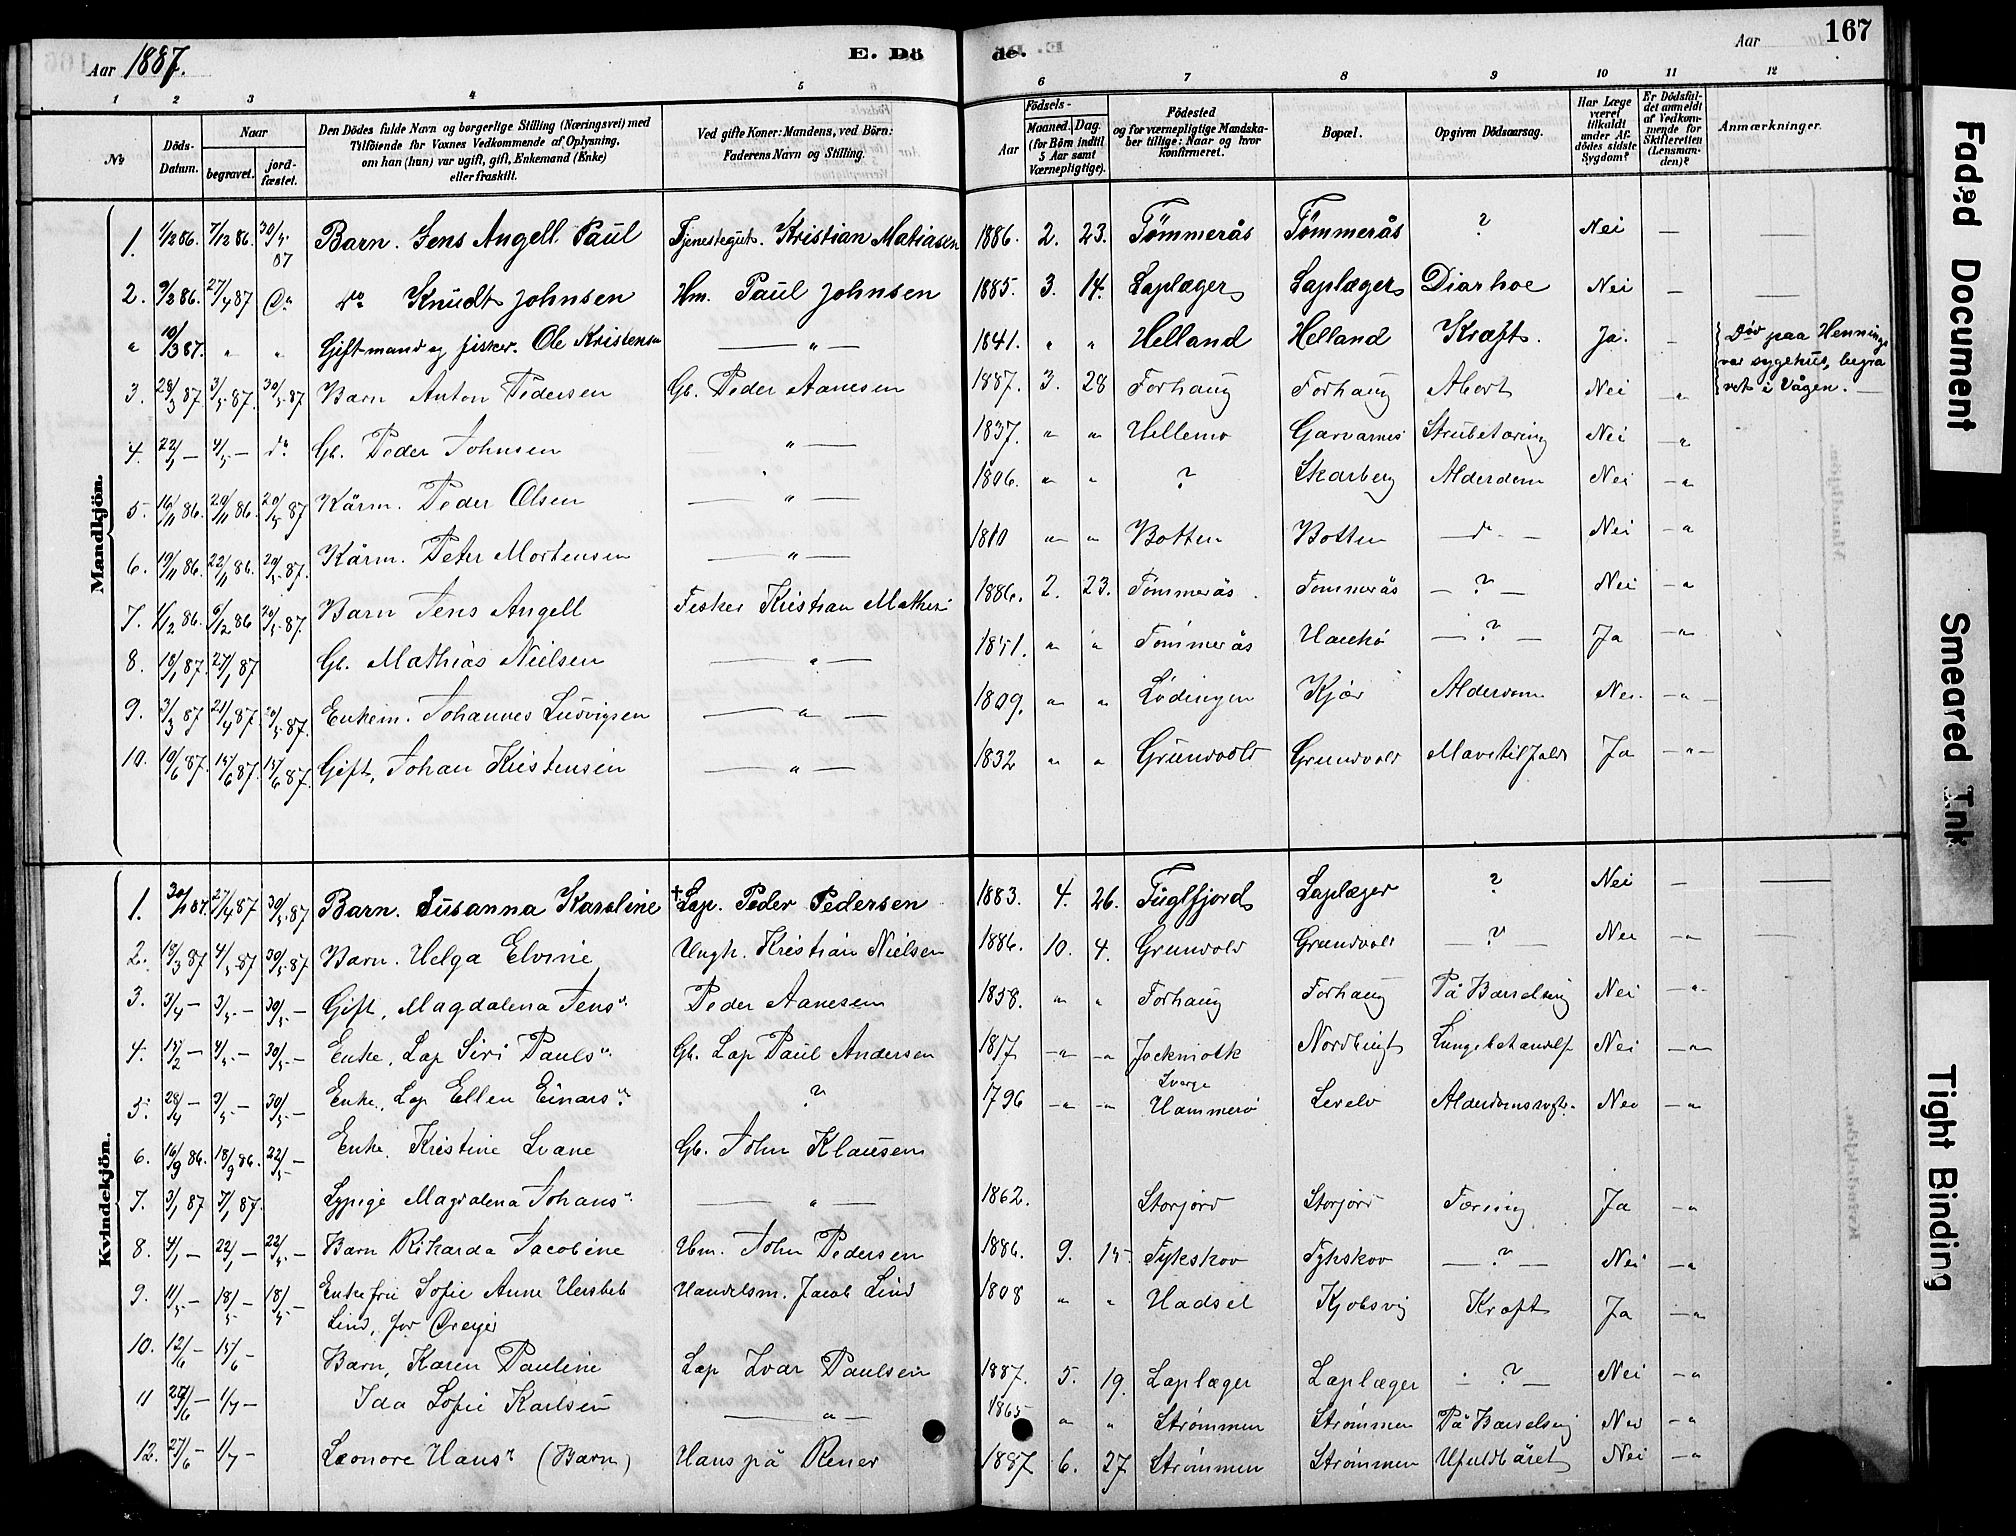 Aar 1887. E. Dö
de. Aar 167
1 2 3 4 5
6 7 8 9 10 11 12
No
Döds-Datum.
Naar begravet. jord-fæstet.
Den Dödes fulde Navn og borgerlige Stilling (Næringsvei) med
Tilföiende for Voxnes Vedkommende af Oplysning,
om han (hun) var ugift, gift, Enkemand (Enke)
eller fraskilt.
Ved gifte Koner: Mandens, ved Börn:
Faderens Navn og Stilling.
Födsels-
Aar Maaned. Dag.
(for Börn indtil 5 Aar samt Værnepligtige).
Födested
og for værnepligtige Mandska-
ber tillige: Naar og hvor
konfirmeret.
Bopæl.
Opgiven Dödsaarsag.
Har Læge været tilkaldt under Afdödes sidste Sygdom?
Er Dödsfaldet anmeldt af Vedkommende for Skifteretten (Lensmanden)?
Anmærkninger.
Mandkjön.
1. 1/12 86. 7/12 86. 30/5 87 Barn. Jens Angell Paul Tjenestegut. Kristian Matiasen 1886. 2. 23. Tømmerås Tømmerås ? Nei —
2. 9/2 86. 27/4 87 Do do Knudt Johnsen Hm. Paul Johnsen 1885. 3. 14. Laplæger Laplæger Diarhoe Nei —
" 10/3 87. " " Gift mand og fisker. Ole Kristensen — " — 1841. " " Helland Helland Kræft. Ja. — Död paa Hennings
vær sygehus, begra
vet i Vågen.
3. 28/3 87. 3/5 87. 30/5 87 Barn Anton Pedersen Gb. Peder Aanesen 1887. 3. 28 Forhaug Forhaug Abort Nei "
4. 22/5 — 4/5 — do Gb. Peder Johnsen — " — 1837. " " Hellemo Garvarnes Strubetæring Nei "
5. 16/11 86. 20/11 86. 20/5 87 Kårm. Peder Olsen — " — 1806. " " ? Skarberg Alderdom Nei "
6. 19/11 86. 22/11 86. 20/5 87. Kårm. Peter Mortensen — " — 1810 " " Botten Botten — do — Nei "
7. 1/12 86. 6/12 86 20/5 87. Barn Jens Angell Fisker Kristian Mathis: 1886. 2. 23. Tømmerås Tømmerås — ? — Nei "
8. 18/1 87. 27/1 87 Gb. Mathias Nielsen — " — 1851. " " Tømmerås — ? — Ja "
9. 3/3 87 21/4 87 20/5 87. Enkem. Johannes Ludvigsen — " — 1809. " " Lødingen Kjær Alderdom Nei "
10. 10/6 87. 15/6 87. 15/6 87. Gift, Johan Kristensen — " — 1832 " " Grundvold Grundvold Mavetilfælde Ja "
Kvindekjön.
1. 30/1 87. 27/4 87 30/5 87 Barn. Susanna Karoline † Lap. Peder Pedersen 1883. 4. 26. Fuglfjord Laplæger ? Nei —
2. 19/3 87 4/5 87 30/5 87 Barn. Helga Elvine Ungk. Kristian Nielsen 1886. 10. 4. Grundvold Grundvold — ? — Nei "
3. 3/4 — 3/5 — 30/5 — Gift, Magdalena Jens" Peder Aanesen 1858. " " Forhaug Forhaug På Barselseng Nei "
4. 15/2 — 4/5 — 30/5 — Enke, Lap Siri Pauls" Gb. Lap Paul Andersen 1817 " " Jockmock Nordbugt Nei "
Sverge
5. 28/4 — 3/5 — 30/5 — Enke, Lap Ellen Einars" ? 1796 " " Hammerø Alderdomssvagh. Nei "
6. 16/9 86. 18/9 86. 22/5 — Enke, Kristine Svane Gb. John Klausen
7. 3/1 87 7/1 87. Lypige Magdalena Johans" — " — 1862. Storjord Storjord Tæring Ja "
8. 4/1 — 22/1 — 22/5 — Barn Rikarda Jacobine Hm. John Pedersen 1886. 9. 15. Tykskov Tykskov — ? — Nei "
9. 11/5 — 18/5 — 18/5 — Enkefru Sofie Anne Handelsm. Jacob Lind 1808 " " Hadsel Kjobsvig Kræft Ja "
Lind, før Dreyer
10. 12/6 — 15/6 — Barn, Karen Pauline Lap Ivar Paulsen 1887. 5. 19. Laplæger Laplæger — ? — Nei "
11 1/7 — Ida Sofie Karlsen — " — 1865 " " Strømmen Strømmen På Barselseng Nei "
12. 27/6 — 1/7 — Leonore Hans" (Barn) Hans på Renes 1887 6. 27 Strømmen Strømmen Ufuldbåret Nei "
Faded Document
Smeared Ink
Tight Binding